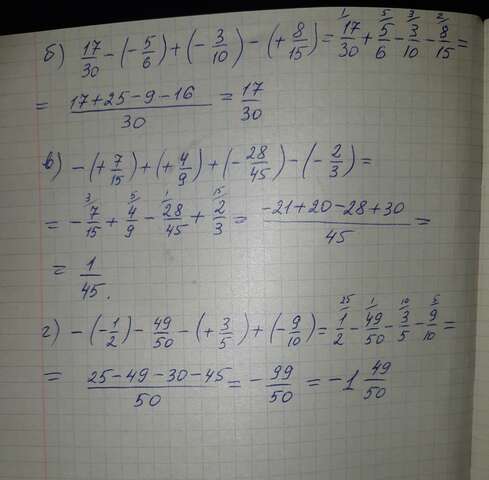 б) 17/30 - (-5/6) + (-3/10) - (+8/15) = 17/30 + 5/6 - 3/10 - 8/15 =
= (17+25-9-16)/30 = 17/30
в) -(+7/15) + (+4/9) + (-28/45) - (-2/3) =
= -7/15 + 4/9 - 28/45 + 2/3 = (-21+20-28+30)/45 =
= 1/45.
г) -(-1/2) - 49/50 - (+3/5) + (-9/10) = 1/2 - 49/50 - 3/5 - 9/10 =
= (25-49-30-45)/50 = -99/50 = -1 49/50